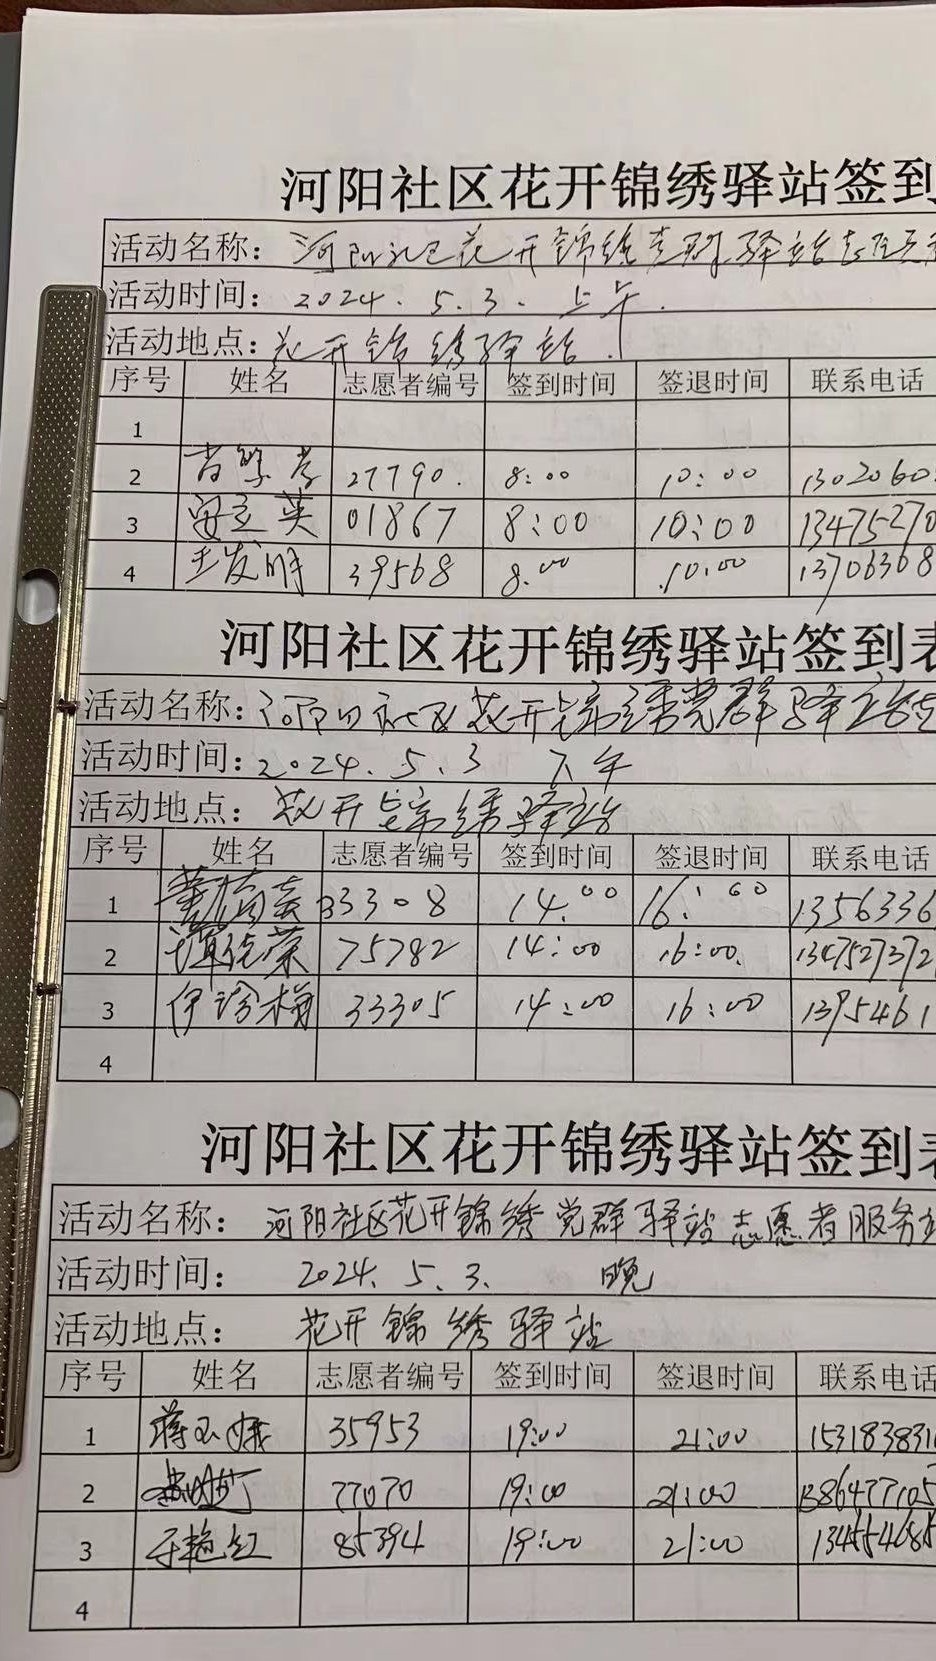 河阳社区花开锦绣驿站签到
活动名称: 河阳社区花开锦绣党群驿站志愿者
活动时间: 2024.5.3. 上午.
活动地点: 花开锦绣驿站.
序号 姓名 志愿者编号 签到时间 签退时间 联系电话
1
2 27790. 8:00 10:00 1302060
3 安立英 01867 8:00 10:00 13475270
4 王发明 39568 8:00 10:00 13706368
河阳社区花开锦绣驿站签到表
活动名称: 河阳社区花开锦绣党群驿站志
活动时间: 2024.5.3 下午
活动地点: 花开锦绣驿站
序号 姓名 志愿者编号 签到时间 签退时间 联系电话
1 33308 14:00 16:00 1356336
2 谭德荣 75782 14:00 16:00. 1347527372
3 伊珍梅 33305 14:00 16:00 1395461
4
河阳社区花开锦绣驿站签到表
活动名称: 河阳社区花开锦绣党群驿站志愿者服务
活动时间: 2024.5.3. 晚
活动地点: 花开锦绣驿站
序号 姓名 志愿者编号 签到时间 签退时间 联系电话
1 蒋玉娥 35953 19:00 21:00 153183831
2 77070 19:00 21:00
3 于艳红 85394 19:00 21:00
4